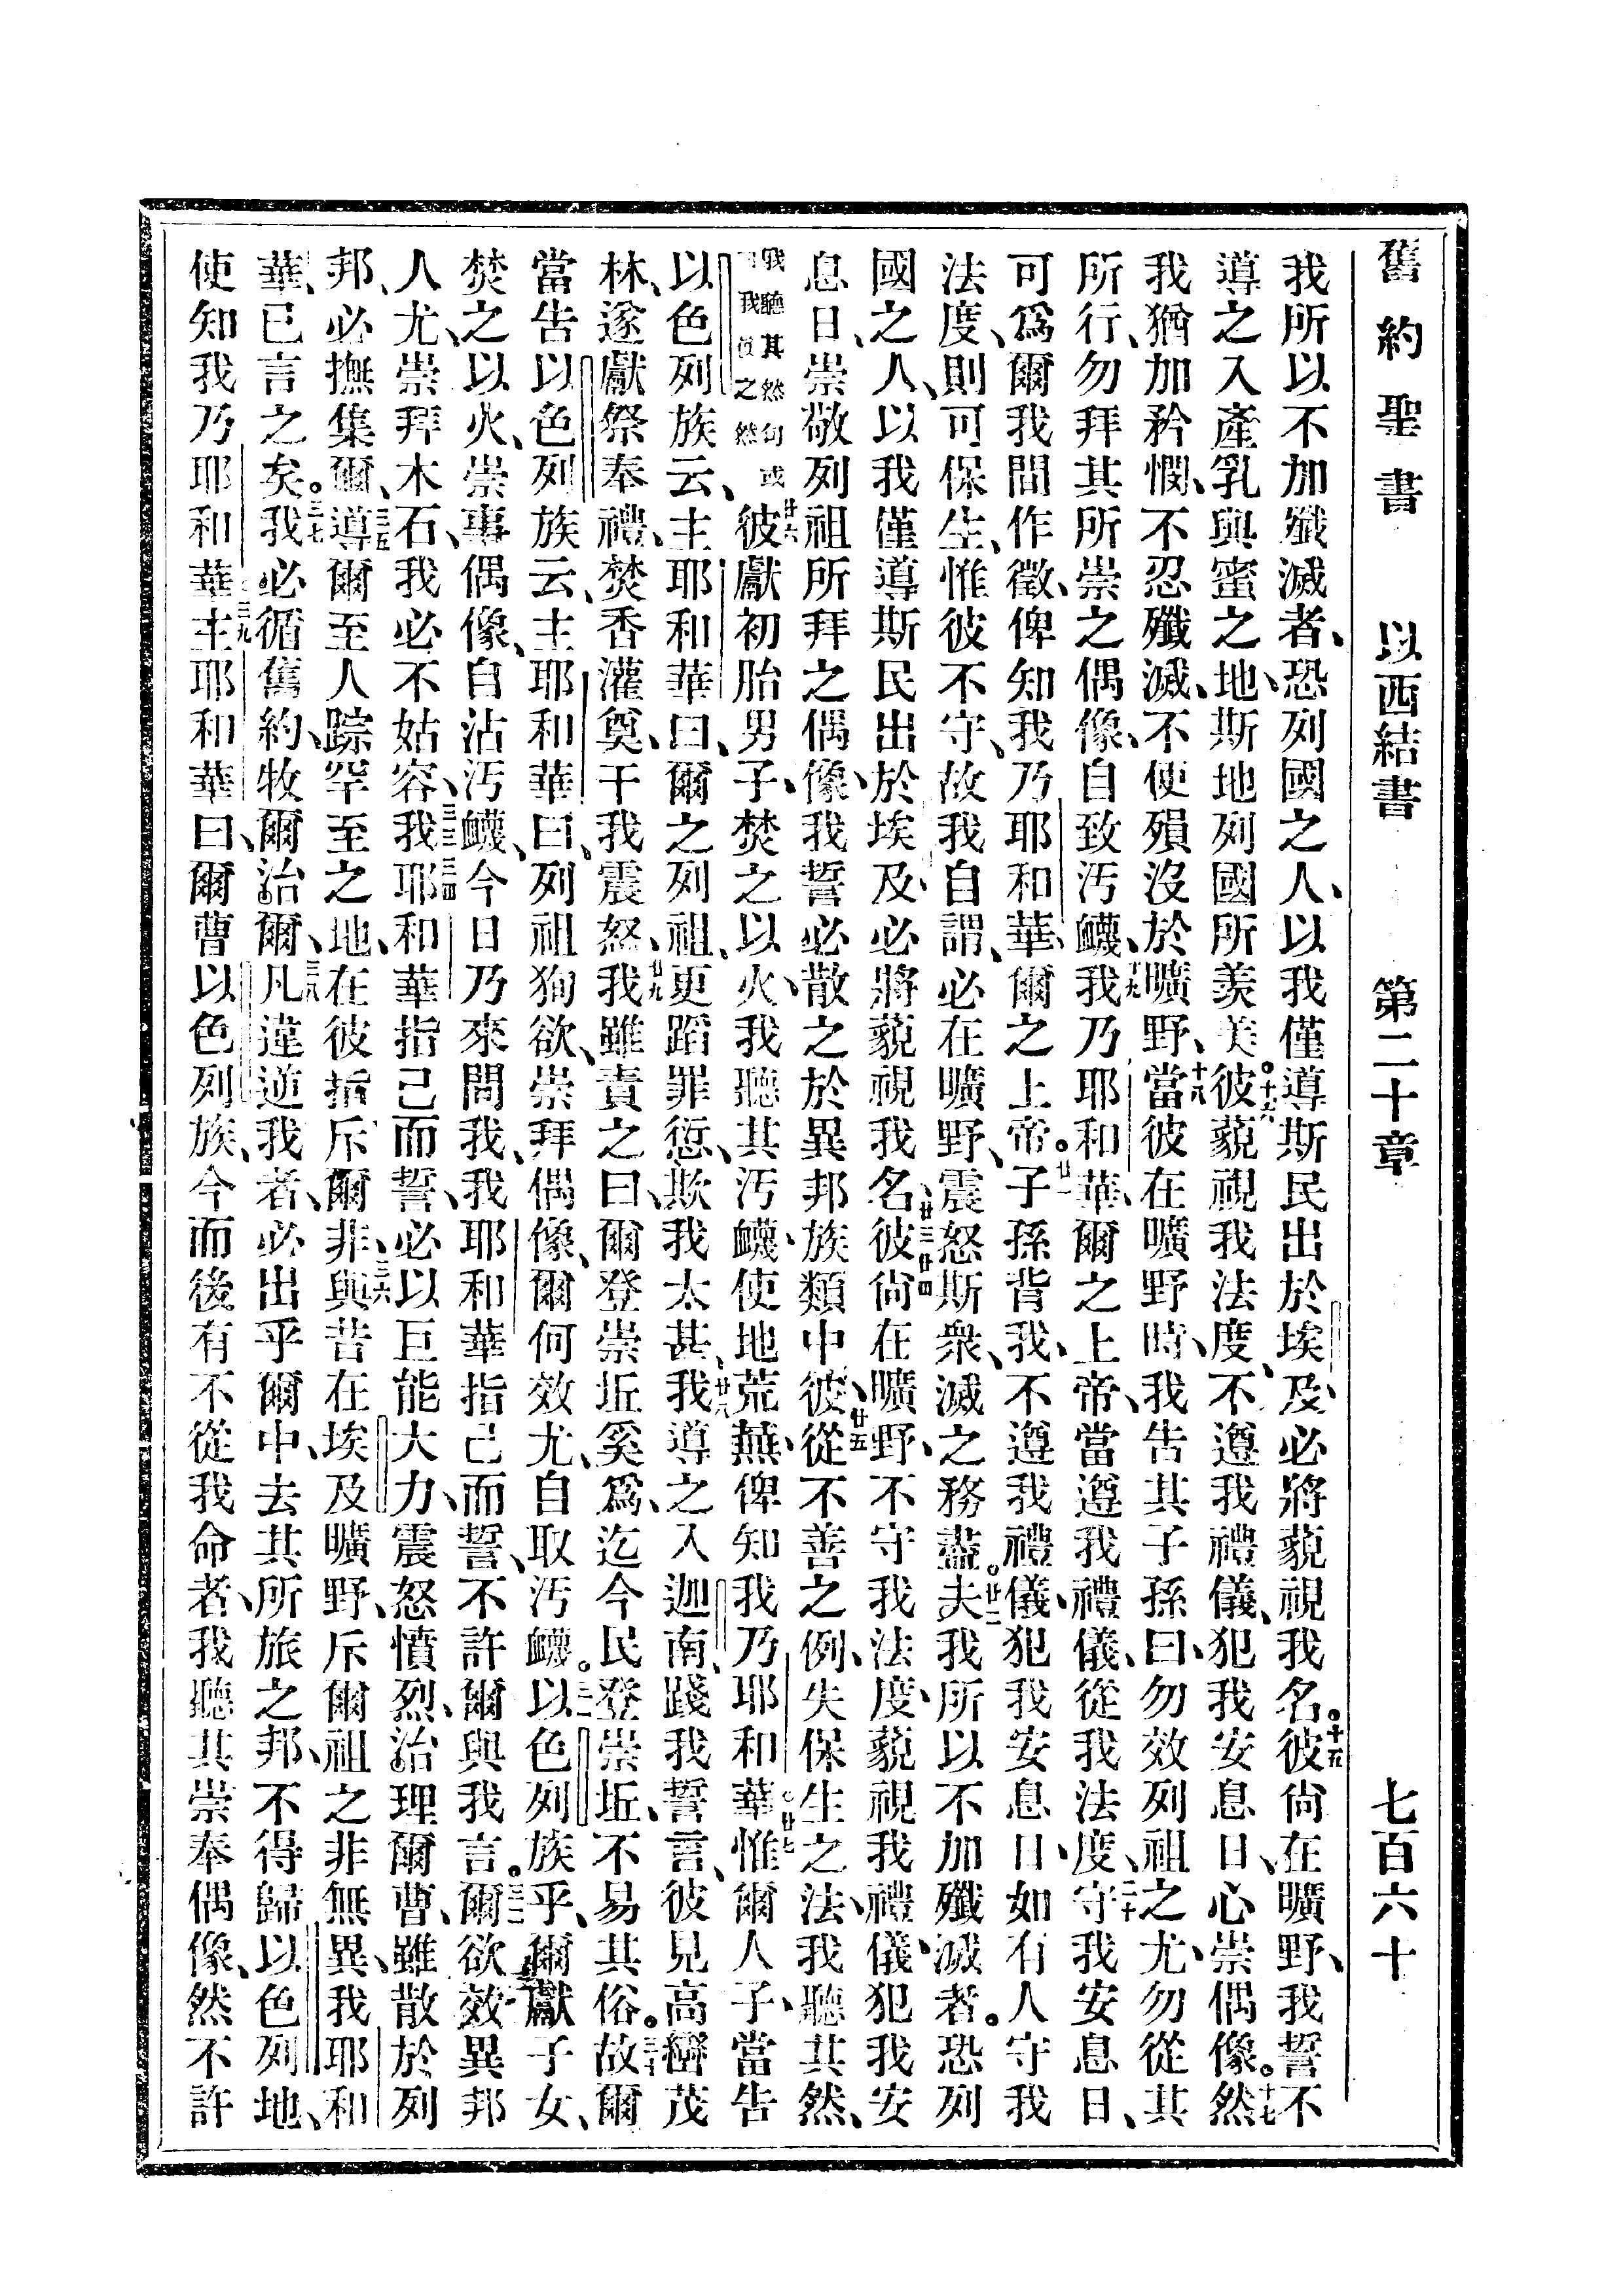 舊約聖書 以西結書 第二十章 七百六十
我所以不加殲滅者、恐列國之人、以我僅導斯民出於埃及、必將藐視我名。十五彼尙在曠野、我誓不
導之入產乳與蜜之地、斯地列國所羨美。十六彼藐視我法度、不遵我禮儀、犯我安息日、心崇偶像。十七然
我猶加矜憫、不忍殲滅、不使殞沒於曠野、十八當彼在曠野時、我告其子孫曰、勿效列祖之尤、勿從其
所行、勿拜其所崇之偶像、自致汚衊、十九我乃耶和華、爾之上帝、當遵我禮儀、從我法度、二十守我安息日、
可爲爾我間作徵、俾知我乃耶和華、爾之上帝。廿一子孫背我、不遵我禮儀、犯我安息日、如有人守我
法度、則可保生、惟彼不守、故我自謂、必在曠野、震怒斯衆、滅之務盡。廿二夫我所以不加殲滅者。恐列
國之人、以我僅導斯民出於埃及、必將藐視我名、廿三廿四彼尙在曠野、不守我法度、藐視我禮儀、犯我安
息日、崇敬列祖所拜之偶像、我誓必散之於異邦族類中、廿五彼從不善之例、失保生之法、我聽其然、
我聽其然句或曰我使之然廿六彼獻初胎男子、焚之以火、我聽其汚衊、使地荒蕪、俾知我乃耶和華。廿七惟爾人子、當告
以色列族云、主耶和華曰、爾之列祖、更蹈罪愆、欺我太甚、廿八我導之入迦南、踐我誓言、彼見高巒茂
林、遂獻祭奉禮、焚香灌奠、干我震怒、廿九我雖責之曰、爾登崇坵奚爲、迄今民登崇坵、不易其俗。三十故爾
當告以色列族云、主耶和華曰、列祖狥欲、崇拜偶像、爾何效尤、自取汚衊。三一以色列族乎、爾獻子女、
焚之以火、崇事偶像、自沾汚衊、今日乃來問我、我耶和華指己而誓、不許爾與我言。三二爾欲效異邦
人尤、崇拜木石、我必不姑容、三三三四我耶和華指己而誓、必以巨能大力、震怒憤烈、治理爾曹、雖散於列
邦、必撫集爾、三五導爾至人踪罕至之地、在彼指斥爾非、三六與昔在埃及曠野、斥爾祖之非無異、我耶和
華、已言之矣。三七我必循舊約、牧爾治爾、三八凡違逆我者、必出乎爾中、去其所旅之邦、不得歸以色列地、
使知我乃耶和華。三九主耶和華曰、爾曹以色列族、今而後有不從我命者、我聽其崇奉偶像、然不許